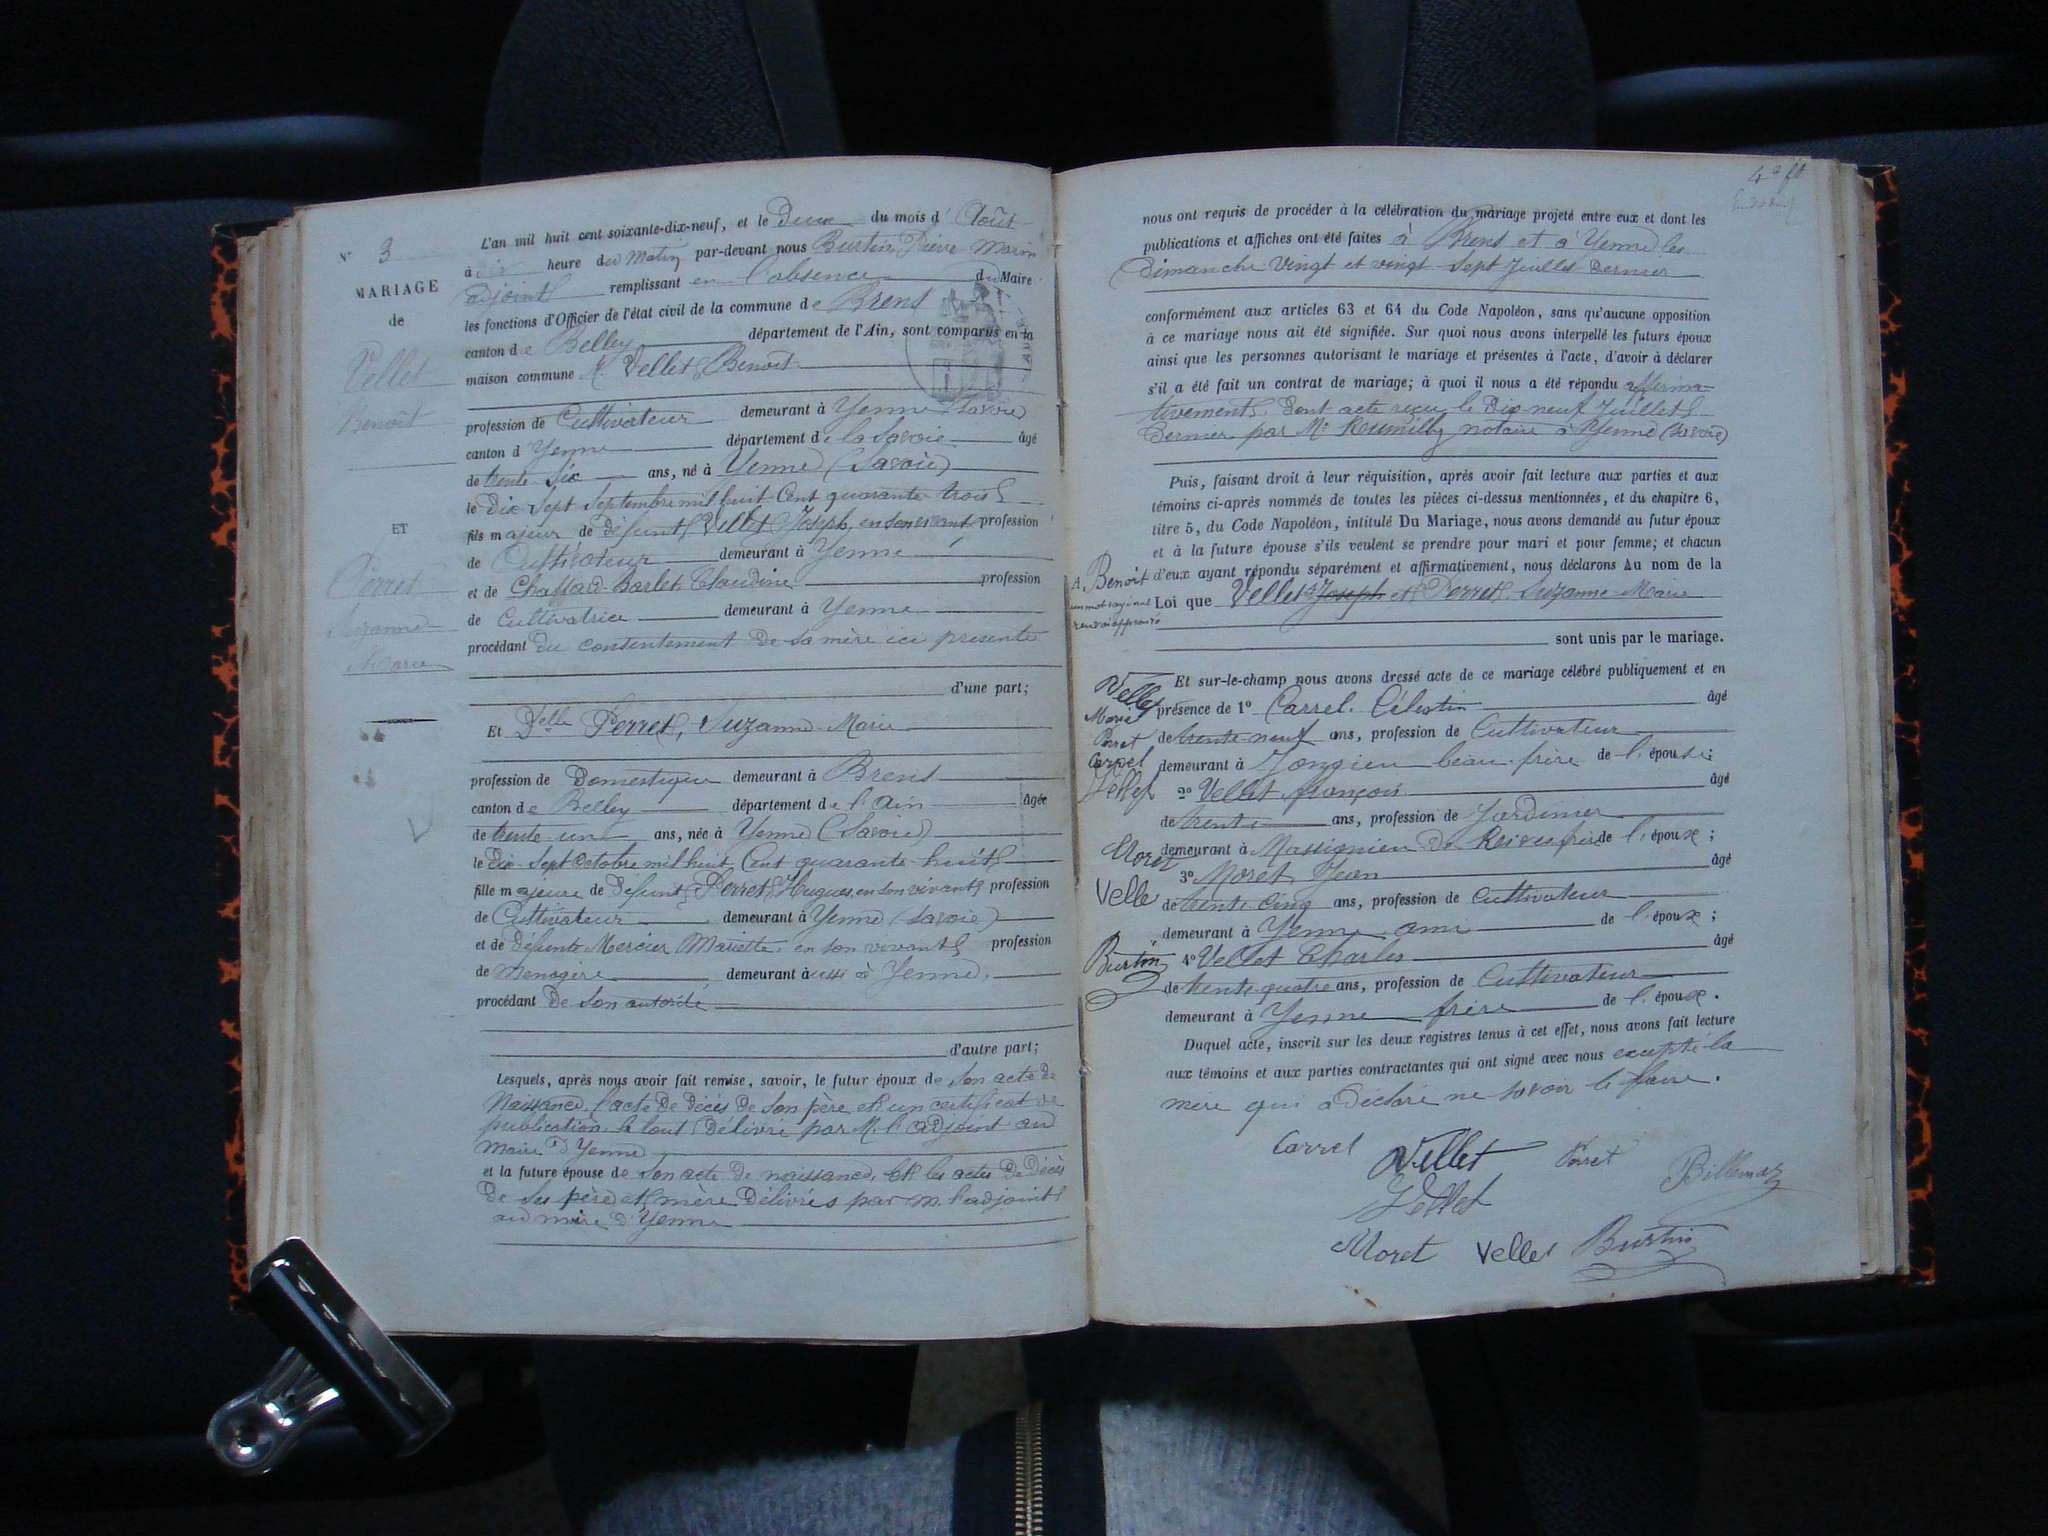 N° 3
MARIAGE
de
Vellet
Benoît
ET
Perret
Suzanne
Marie
L'an mil huit cent soixante-dix-neuf, et le Deux du mois d'Août
à dix heure du Matin par-devant nous Burtin Pierre Marin
adjoint remplissant en l'absence du Maire
les fonctions d'Officier de l'état civil de la commune de Brens
canton de Belley département de l'Ain, sont comparus en la
maison commune M. Vellet Benoit
profession de Cultivateur demeurant à Yenne (Savoie)
canton d'Yenne département de la Savoie âgé
de trente six ans, né à Yenne (Savoie)
le Dix Sept Septembre mil huit Cent quarante trois
fils majeur de défunt Vellet Joseph, en son vivant, profession
de Cultivateur demeurant à Yenne
et de Chaffard-Barlet Claudine profession
de Cultivatrice demeurant à Yenne
procédant du consentement de sa mère ici présente
d'une part;
Et Delle Perret, Suzanne-Marie
profession de Domestique demeurant à Brens
canton de Belley département de l'Ain âgée
de trente-un ans, née à Yenne (Savoie)
le Dix-Sept Octobre mil huit Cent quarante-huit
fille majeure de défunt Perret Hugues, en son vivant profession
de Cultivateur demeurant à Yenne (Savoie)
et de défunte Mercier Mariette, en son vivant profession
de Menagère demeurant aussi à Yenne,
procédant de son autorité
d'autre part;
Lesquels, après nous avoir fait remise, savoir, le futur époux de son acte de
Naissance, l'acte de Décès de son père et un certificat de
publication, le tout délivré par M. l'adjoint au
Maire d'Yenne
et la future épouse de son acte de naissance, et les actes de décès
de ses père et mère délivrés par M. l'adjoint
au maire d'Yenne
4e ft
nous ont requis de procéder à la célébration du mariage projeté entre eux et dont les
publications et affiches ont été faites à Brens et à Yenne les
Dimanche vingt et vingt-sept Juillet dernier
conformément aux articles 63 et 64 du Code Napoléon, sans qu'aucune opposition
à ce mariage nous ait été signifiée. Sur quoi nous avons interpellé les futurs époux
ainsi que les personnes autorisant le mariage et présentes à l'acte, d'avoir à déclarer
s'il a été fait un contrat de mariage; à quoi il nous a été répondu affirma-
tivement, dont acte reçu le Dix neuf Juillet
dernier par Me Rumilly notaire à Yenne (Savoie)
Puis, faisant droit à leur réquisition, après avoir fait lecture aux parties et aux
témoins ci-après nommés de toutes les pièces ci-dessus mentionnées, et du chapitre 6,
titre 5, du Code Napoléon, intitulé Du Mariage, nous avons demandé au futur époux
et à la future épouse s'ils veulent se prendre pour mari et pour femme; et chacun
d'eux ayant répondu séparément et affirmativement, nous déclarons Au nom de la
Loi que Vellet Joseph et Perret Suzanne-Marie
sont unis par le mariage.
A. Benoit
un mot rayé nul
renvoi approuvé
Vellet
Marie
Perret
Carrel
Vellet
Moret
Velle
Burtin
Et sur-le-champ nous avons dressé acte de ce mariage célébré publiquement et en
présence de 1° Carrel Célestin âgé
de trente-neuf ans, profession de Cultivateur
demeurant à Jongieu beau-frère de l'épouse;
2° Vellet françois âgé
de trente ans, profession de Jardinier
demeurant à Massignieu de Rives frère de l'époux;
3° Moret Jean âgé
de trente-cinq ans, profession de Cultivateur
demeurant à Yenne ami de l'époux;
4° Vellet Charles âgé
de trente-quatre ans, profession de Cultivateur
demeurant à Yenne frère de l'époux.
Duquel acte, inscrit sur les deux registres tenus à cet effet, nous avons fait lecture
aux témoins et aux parties contractantes qui ont signé avec nous excepté la
mère qui a déclaré ne savoir le faire.
Carrel Vellet Perret Billemaz
Vellet
Moret Vellet Burtin